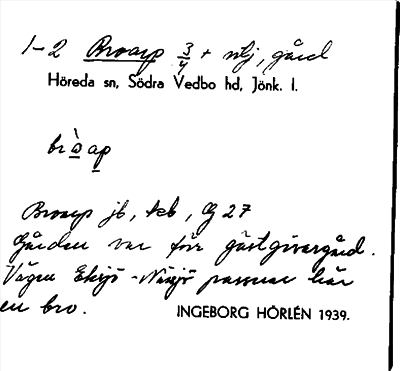 1-2 Broarp 3/4 + utj, gård
Höreda sn, Södra Vedbo hd, Jönk. l.
brò̲ap̲
Broarp jb, kb, G 27
Gården var förr gästgivargård.
Vägen Eksjö - Nässjö passerar här
en bro.
INGEBORG HÖRLÉN 1939.